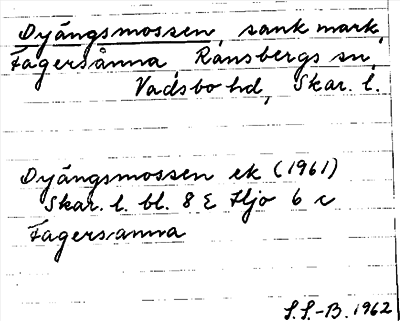 Dyängsmossen, sank mark,
Fagersanna, Ransbergs sn,
Vadsbo hd, Skar. l.
Dyängsmossen ek (1961)
Skar. l. bl. 8 E Hjo 6 c
Fagersanna
S.S.-B. 1962